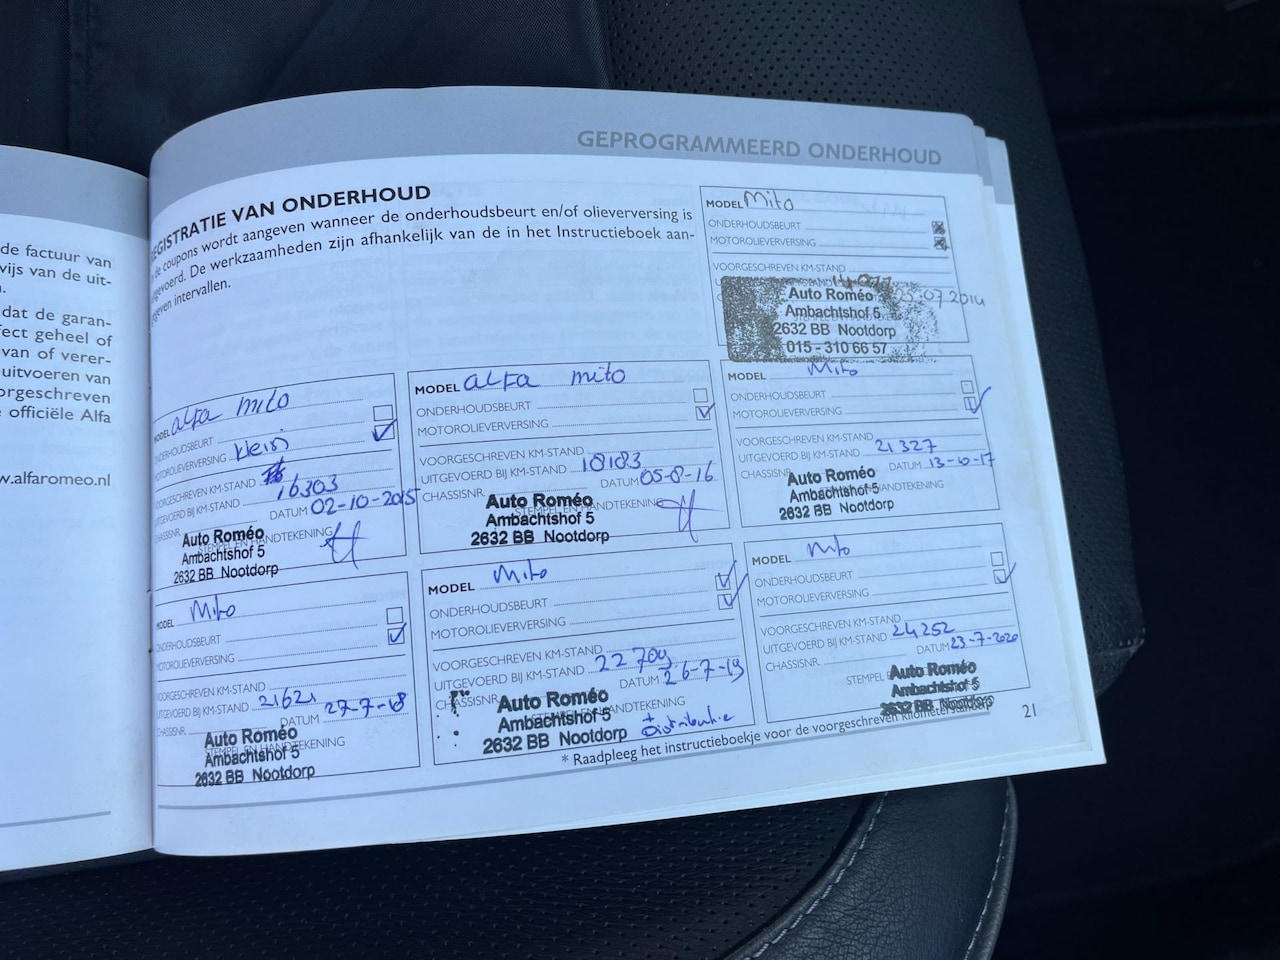 de factuur van
wijs van de uit-
dat de garan-
fect geheel of
van of verer-
uitvoeren van
orgeschreven
officiële Alfa
w.alfaromeo.nl
GEPROGRAMMEERD ONDERHOUD
EGISTRATIE VAN ONDERHOUD
de coupons wordt aangeven wanneer de onderhoudsbeurt en/of olieverversing is
gevoerd. De werkzaamheden zijn afhankelijk van de in het Instructieboek aan-
geven intervallen.
MODEL Mito
ONDERHOUDSBEURT
MOTOROLIEVERVERSING
VOORGESCHREVEN KM-STAND
05.07.2014
Auto Roméo
Ambachtshof 5
2632 BB Nootdorp
015 - 310 66 57
MODEL alfa mito
ONDERHOUDSBEURT
MOTOROLIEVERVERSING klein
VOORGESCHREVEN KM-STAND
UITGEVOERD BIJ KM-STAND 16303
CHASSISNR. DATUM 02-10-2015
STEMPEL EN HANDTEKENING
Auto Roméo
Ambachtshof 5
2632 BB Nootdorp
MODEL alfa mito
ONDERHOUDSBEURT
MOTOROLIEVERVERSING
VOORGESCHREVEN KM-STAND
UITGEVOERD BIJ KM-STAND 18183
CHASSISNR. DATUM 05-8-16
STEMPEL EN HANDTEKENING
Auto Roméo
Ambachtshof 5
2632 BB Nootdorp
MODEL Mito
ONDERHOUDSBEURT
MOTOROLIEVERVERSING
VOORGESCHREVEN KM-STAND
UITGEVOERD BIJ KM-STAND 21327
CHASSISNR. DATUM 13-10-17
HANDTEKENING
Auto Roméo
Ambachtshof 5
2632 BB Nootdorp
MODEL Mito
ONDERHOUDSBEURT
MOTOROLIEVERVERSING
VOORGESCHREVEN KM-STAND
UITGEVOERD BIJ KM-STAND 21621
CHASSISNR. DATUM 27-7-18
STEMPEL EN HANDTEKENING
Auto Roméo
Ambachtshof 5
2632 BB Nootdorp
MODEL Mito
ONDERHOUDSBEURT
MOTOROLIEVERVERSING
VOORGESCHREVEN KM-STAND
UITGEVOERD BIJ KM-STAND 22709
CHASSISNR. DATUM 26-7-19
HANDTEKENING
Auto Roméo
Ambachtshof 5
2632 BB Nootdorp
+ Distributie
MODEL Mito
ONDERHOUDSBEURT
MOTOROLIEVERVERSING
VOORGESCHREVEN KM-STAND
UITGEVOERD BIJ KM-STAND 24252
CHASSISNR. DATUM 23-7-2020
STEMPEL
Auto Roméo
Ambachtshof 5
2632 BB Nootdorp
* Raadpleeg het instructieboekje voor de voorgeschreven kilometerstanden
21